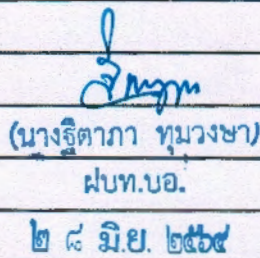 (นางฐิตาภา ทุมวงษา)
ฝบท.บอ.
๒ ๘ มิ.ย. ๒๕๖๔